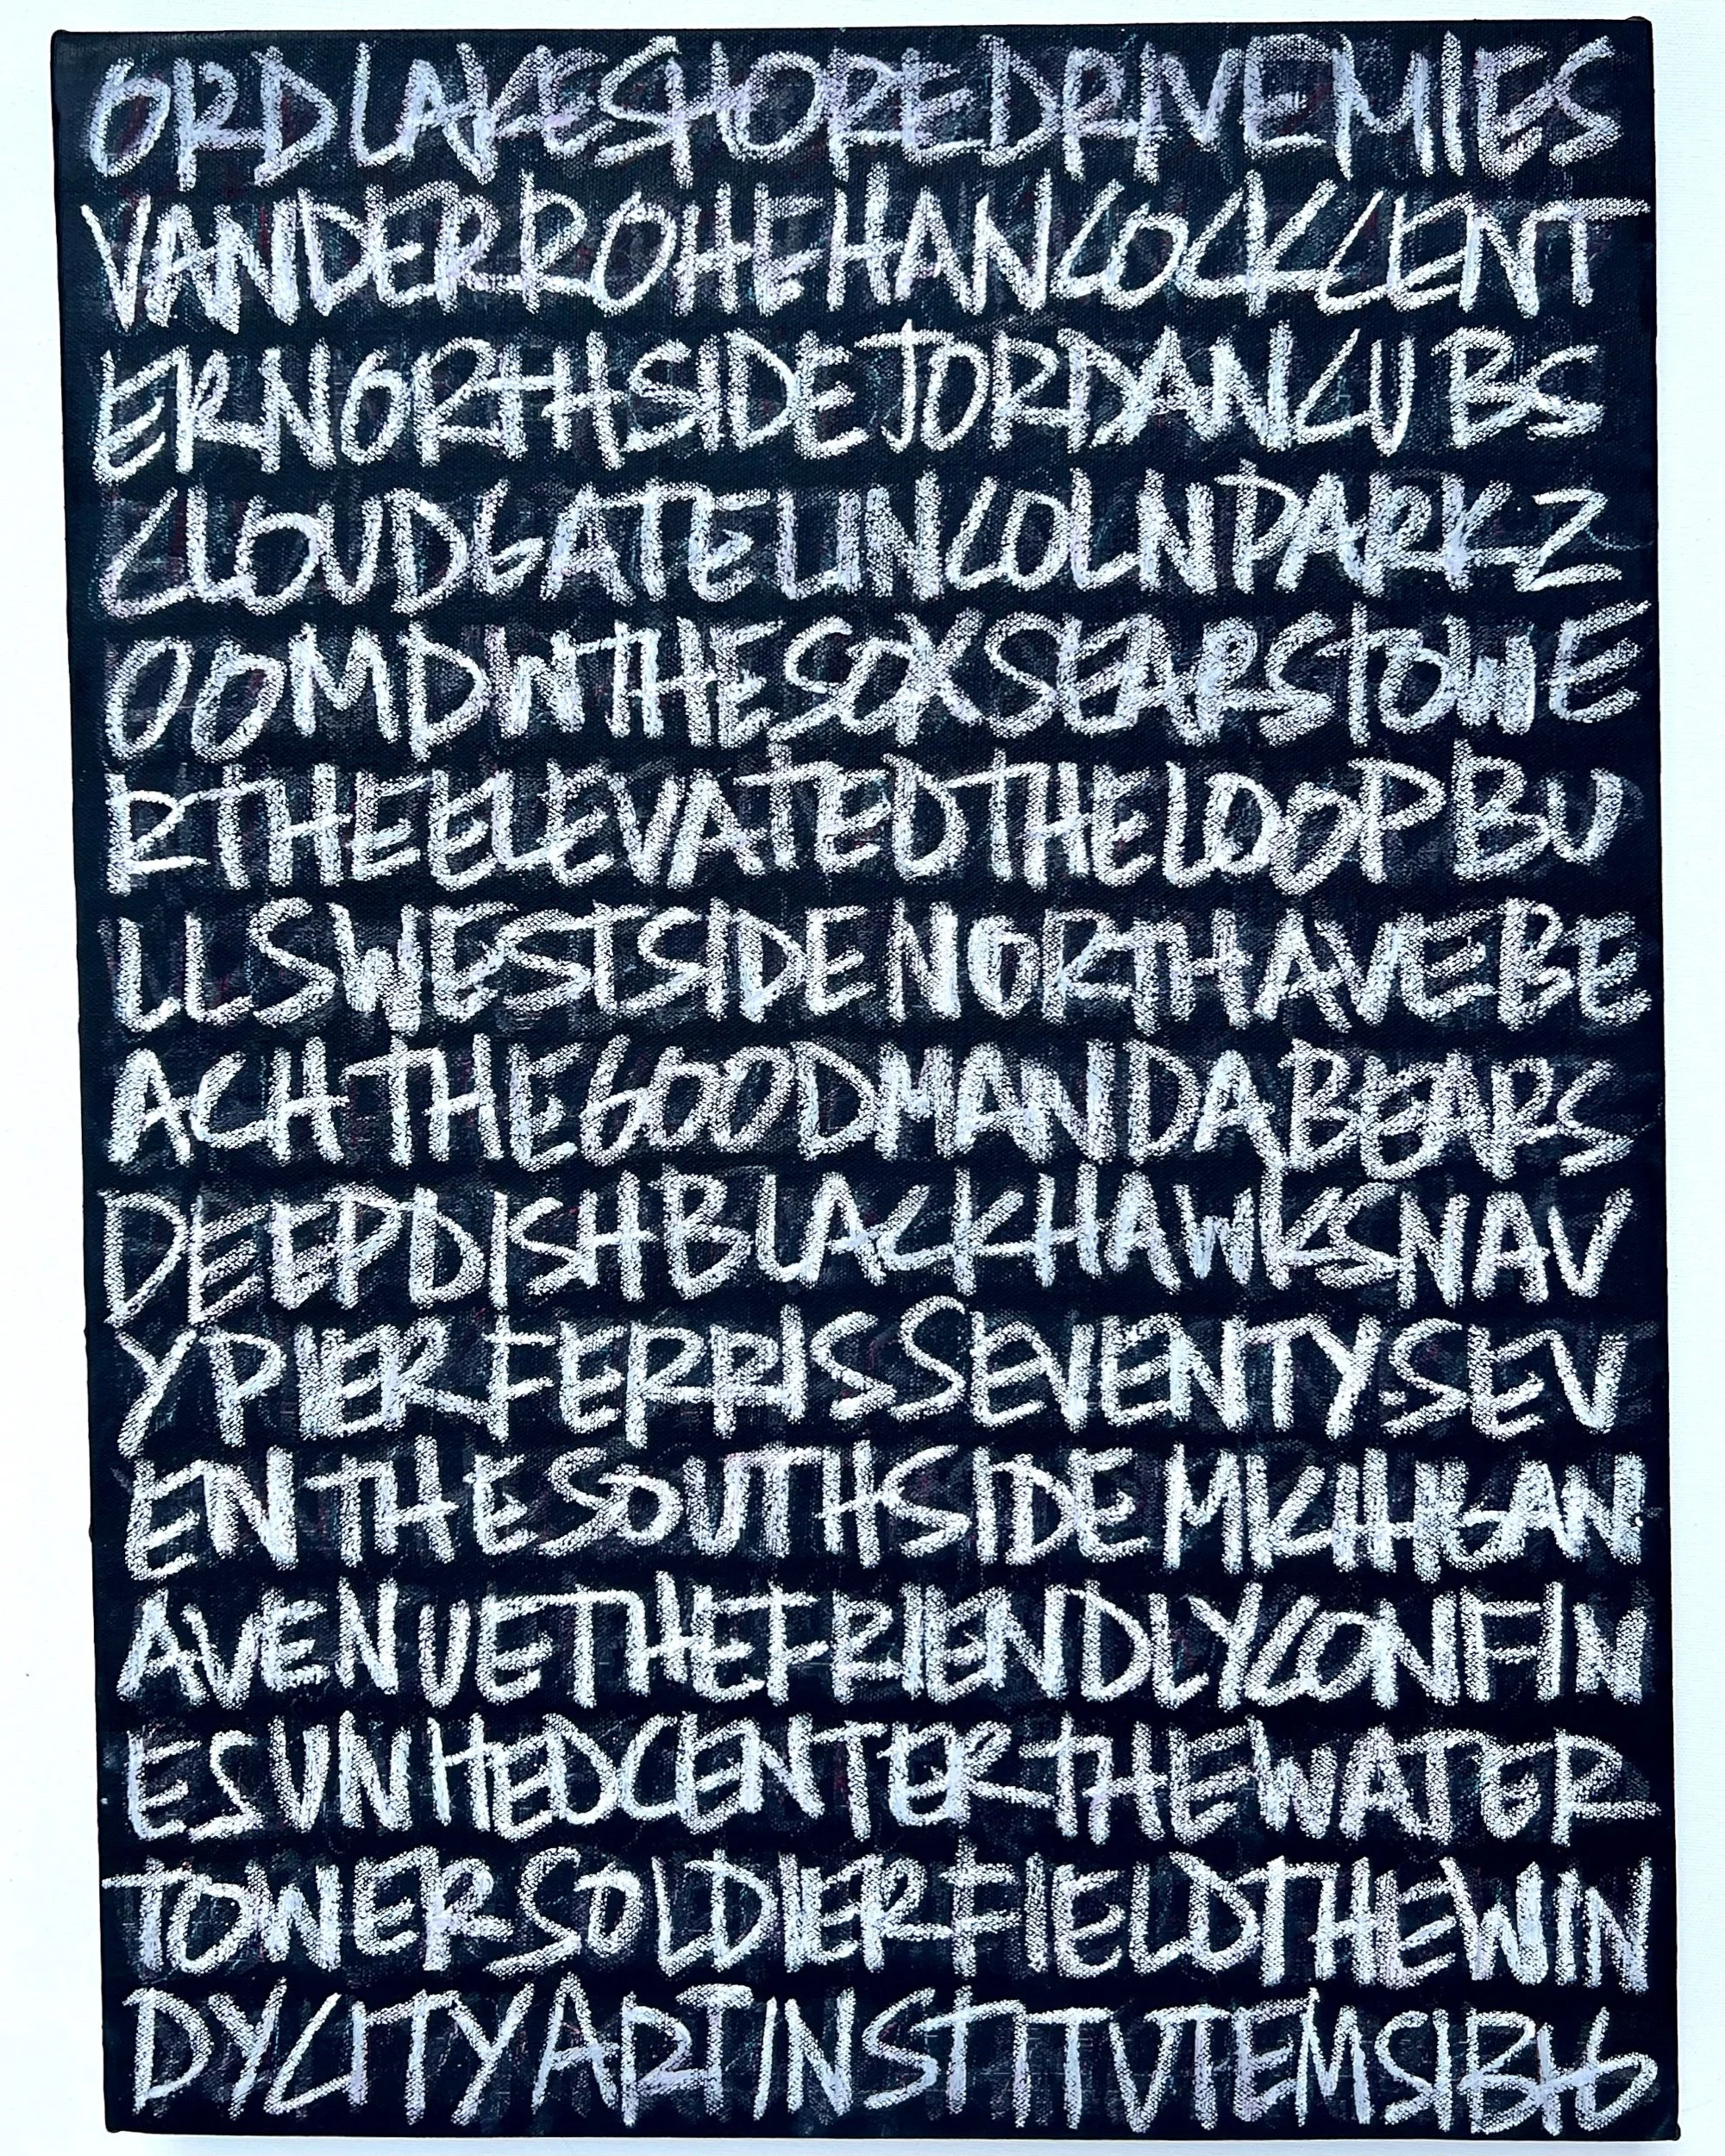 ORDLAKESHOREDRIVEMIES
VANDERROHEHANCOCKCENT
ERNORTHSIDEJORDANCUBS
CLOUDGATELINCOLNPARKZ
OOMDWTHESOXSEARSTOWE
RTHEELEVATEDTHELOOPBU
LLSWESTSIDENORTHAVEBE
ACHTHEGOODMANDABEARS
DEEPDISHBLACKHAWKSNAV
YPIERFERRISSEVENTYSEV
ENTHESOUTHSIDEMICHIGAN
AVENUETHEFRIENDLYCONFIN
ESUNITEDCENTERTHEWATER
TOWERSOLDIERFIELDTHEWIN
DYCITYARTINSTITUTEMSIBIG